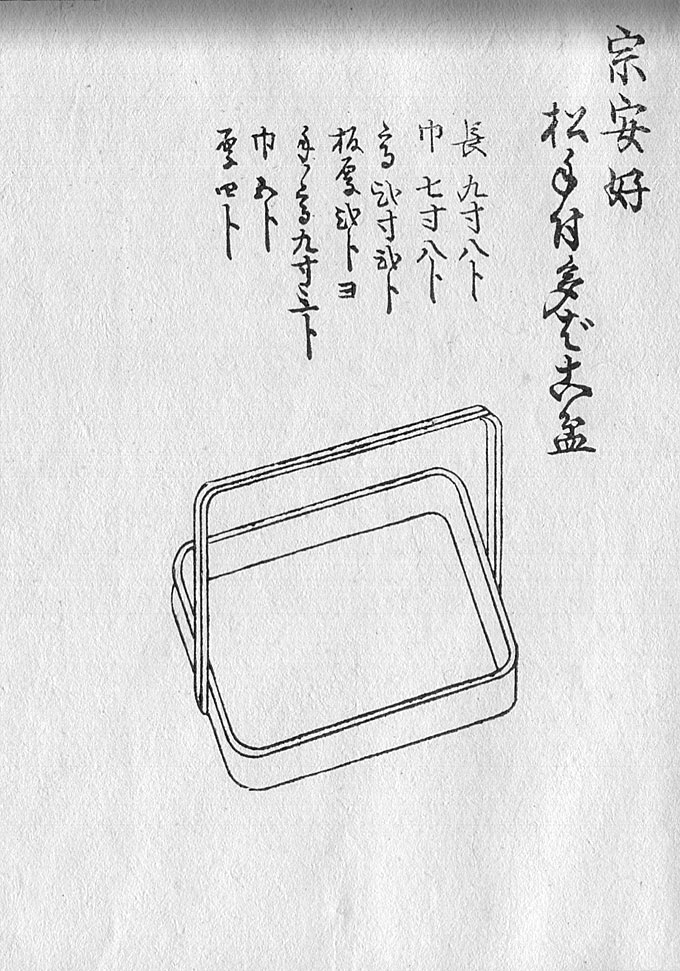 宗安好
松手付多ばこ盆
長九寸八卜
巾七寸八卜
高弐寸弐卜
板厚弐卜ヨ
手高九寸三卜
巾五卜
厚四卜